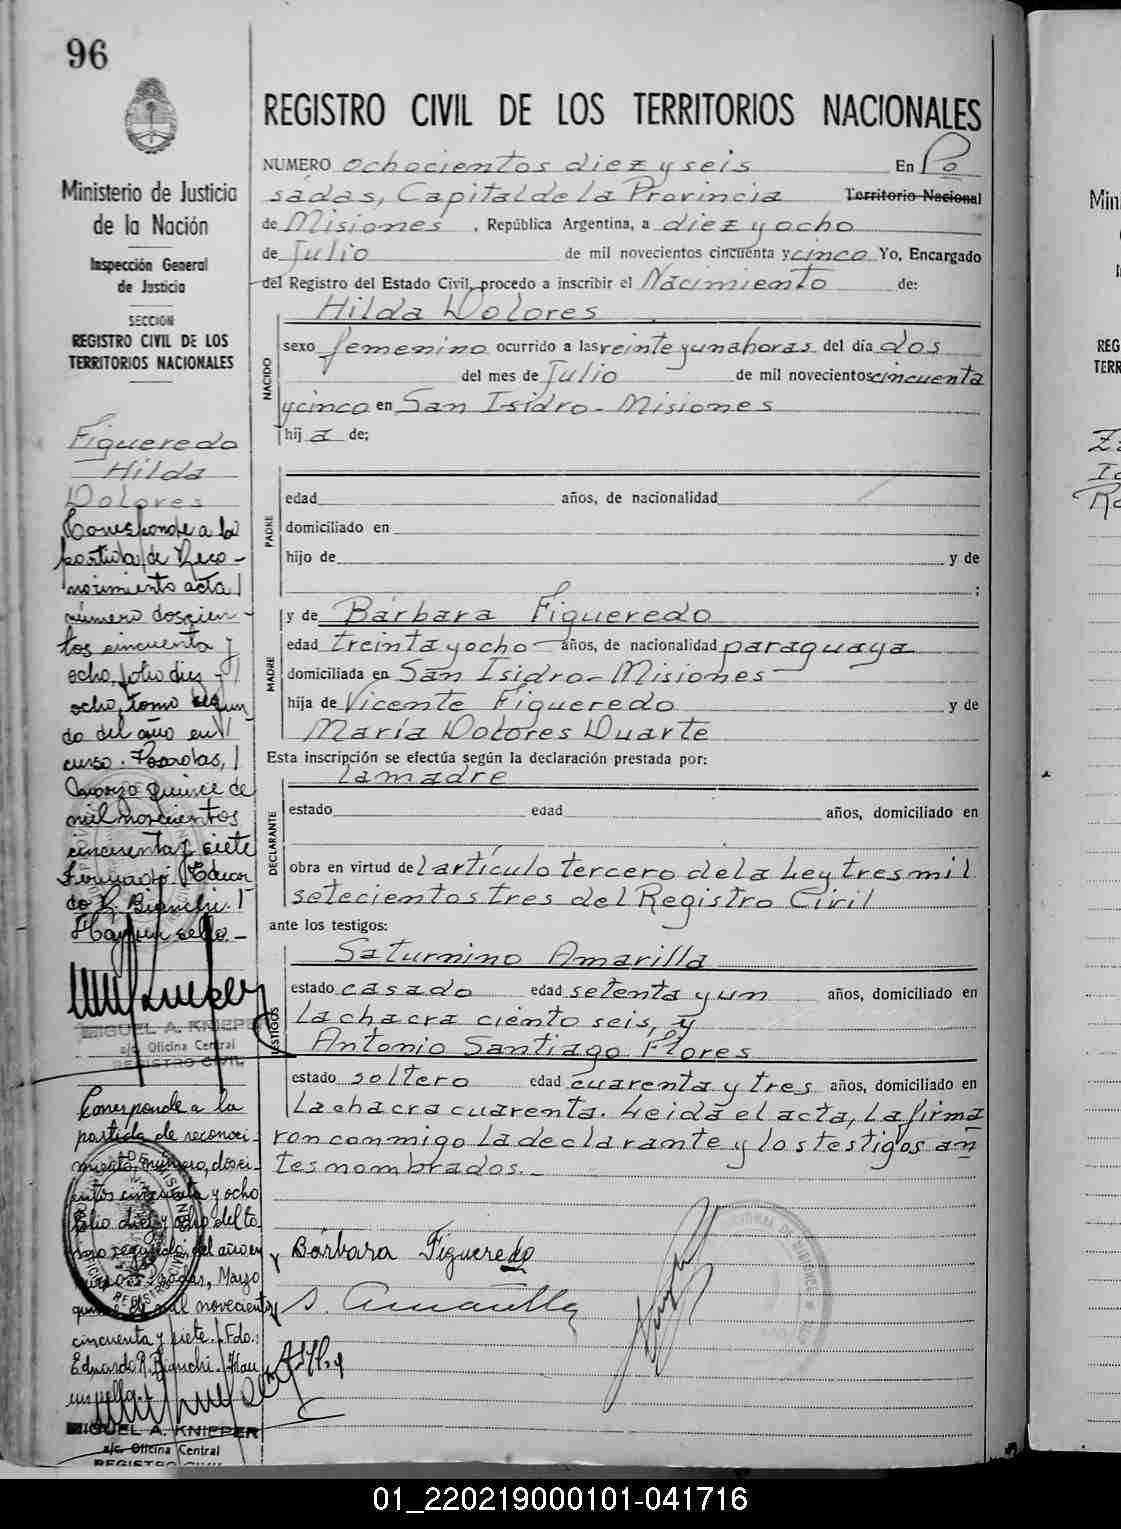 96
Ministerio de Justicia
de la Nación
Inspección General
de Justicia
SECCION
REGISTRO CIVIL DE LOS
TERRITORIOS NACIONALES
Figueredo
Hilda
Dolores
Corresponde a la
partida de Reco-
nocimiento acta
número doscien-
tos cincuenta y
ocho, folio diez y
ocho, tomo segun-
do del año en
curso. Posadas,
Marzo quince de
mil novecientos
cincuenta y siete
Firmado: Eduar
do R. Bianchi.
Hay un sello.-
MIGUEL A. KNIEPER
a/c. Oficina Central
REGISTRO CIVIL
Corresponde a la
partida de reconoci-
miento, número, dosci-
entos cincuenta y ocho
folio diez y ocho del to
mo segundo, del año en
curso. Posadas, Marzo
quince de mil novecientos
cincuenta y siete. Fdo.:
Eduardo R. Bianchi. Hay
un sello.-
MIGUEL A. KNIEPER
a/c. Oficina Central
REGISTRO CIVIL
REGISTRO CIVIL DE LOS TERRITORIOS NACIONALES
NUMERO ochocientos diez y seis En Po
sadas, Capital de la Provincia Territorio Nacional
de Misiones, República Argentina, a diez y ocho
de Julio de mil novecientos cincuenta y cinco Yo, Encargado
del Registro del Estado Civil, procedo a inscribir el Nacimiento de:
Hilda Dolores
NACIDO
sexo femenino ocurrido a las veinte y una horas del día dos
del mes de Julio de mil novecientos cincuenta
y cinco en San Isidro - Misiones
hija de:
PADRE
edad años, de nacionalidad
domiciliado en
hijo de y de
;
MADRE
y de Bárbara Figueredo
edad treinta y ocho años, de nacionalidad paraguaya
domiciliada en San Isidro - Misiones
hija de Vicente Figueredo y de
María Dolores Duarte
Esta inscripción se efectúa según la declaración prestada por:
la madre
DECLARANTE
estado edad años, domiciliado en
obra en virtud del artículo tercero de la Ley tres mil
setecientos tres del Registro Civil
ante los testigos:
TESTIGOS
Saturnino Amarilla
estado casado edad setenta y un años, domiciliado en
La chacra ciento seis, y
Antonio Santiago Flores
estado soltero edad cuarenta y tres años, domiciliado en
La chacra cuarenta. Leida el acta, la firma
ron conmigo la declarante y los testigos an
tes nombrados.-
Bárbara Figueredo
S. Amarilla
01_220219000101-041716